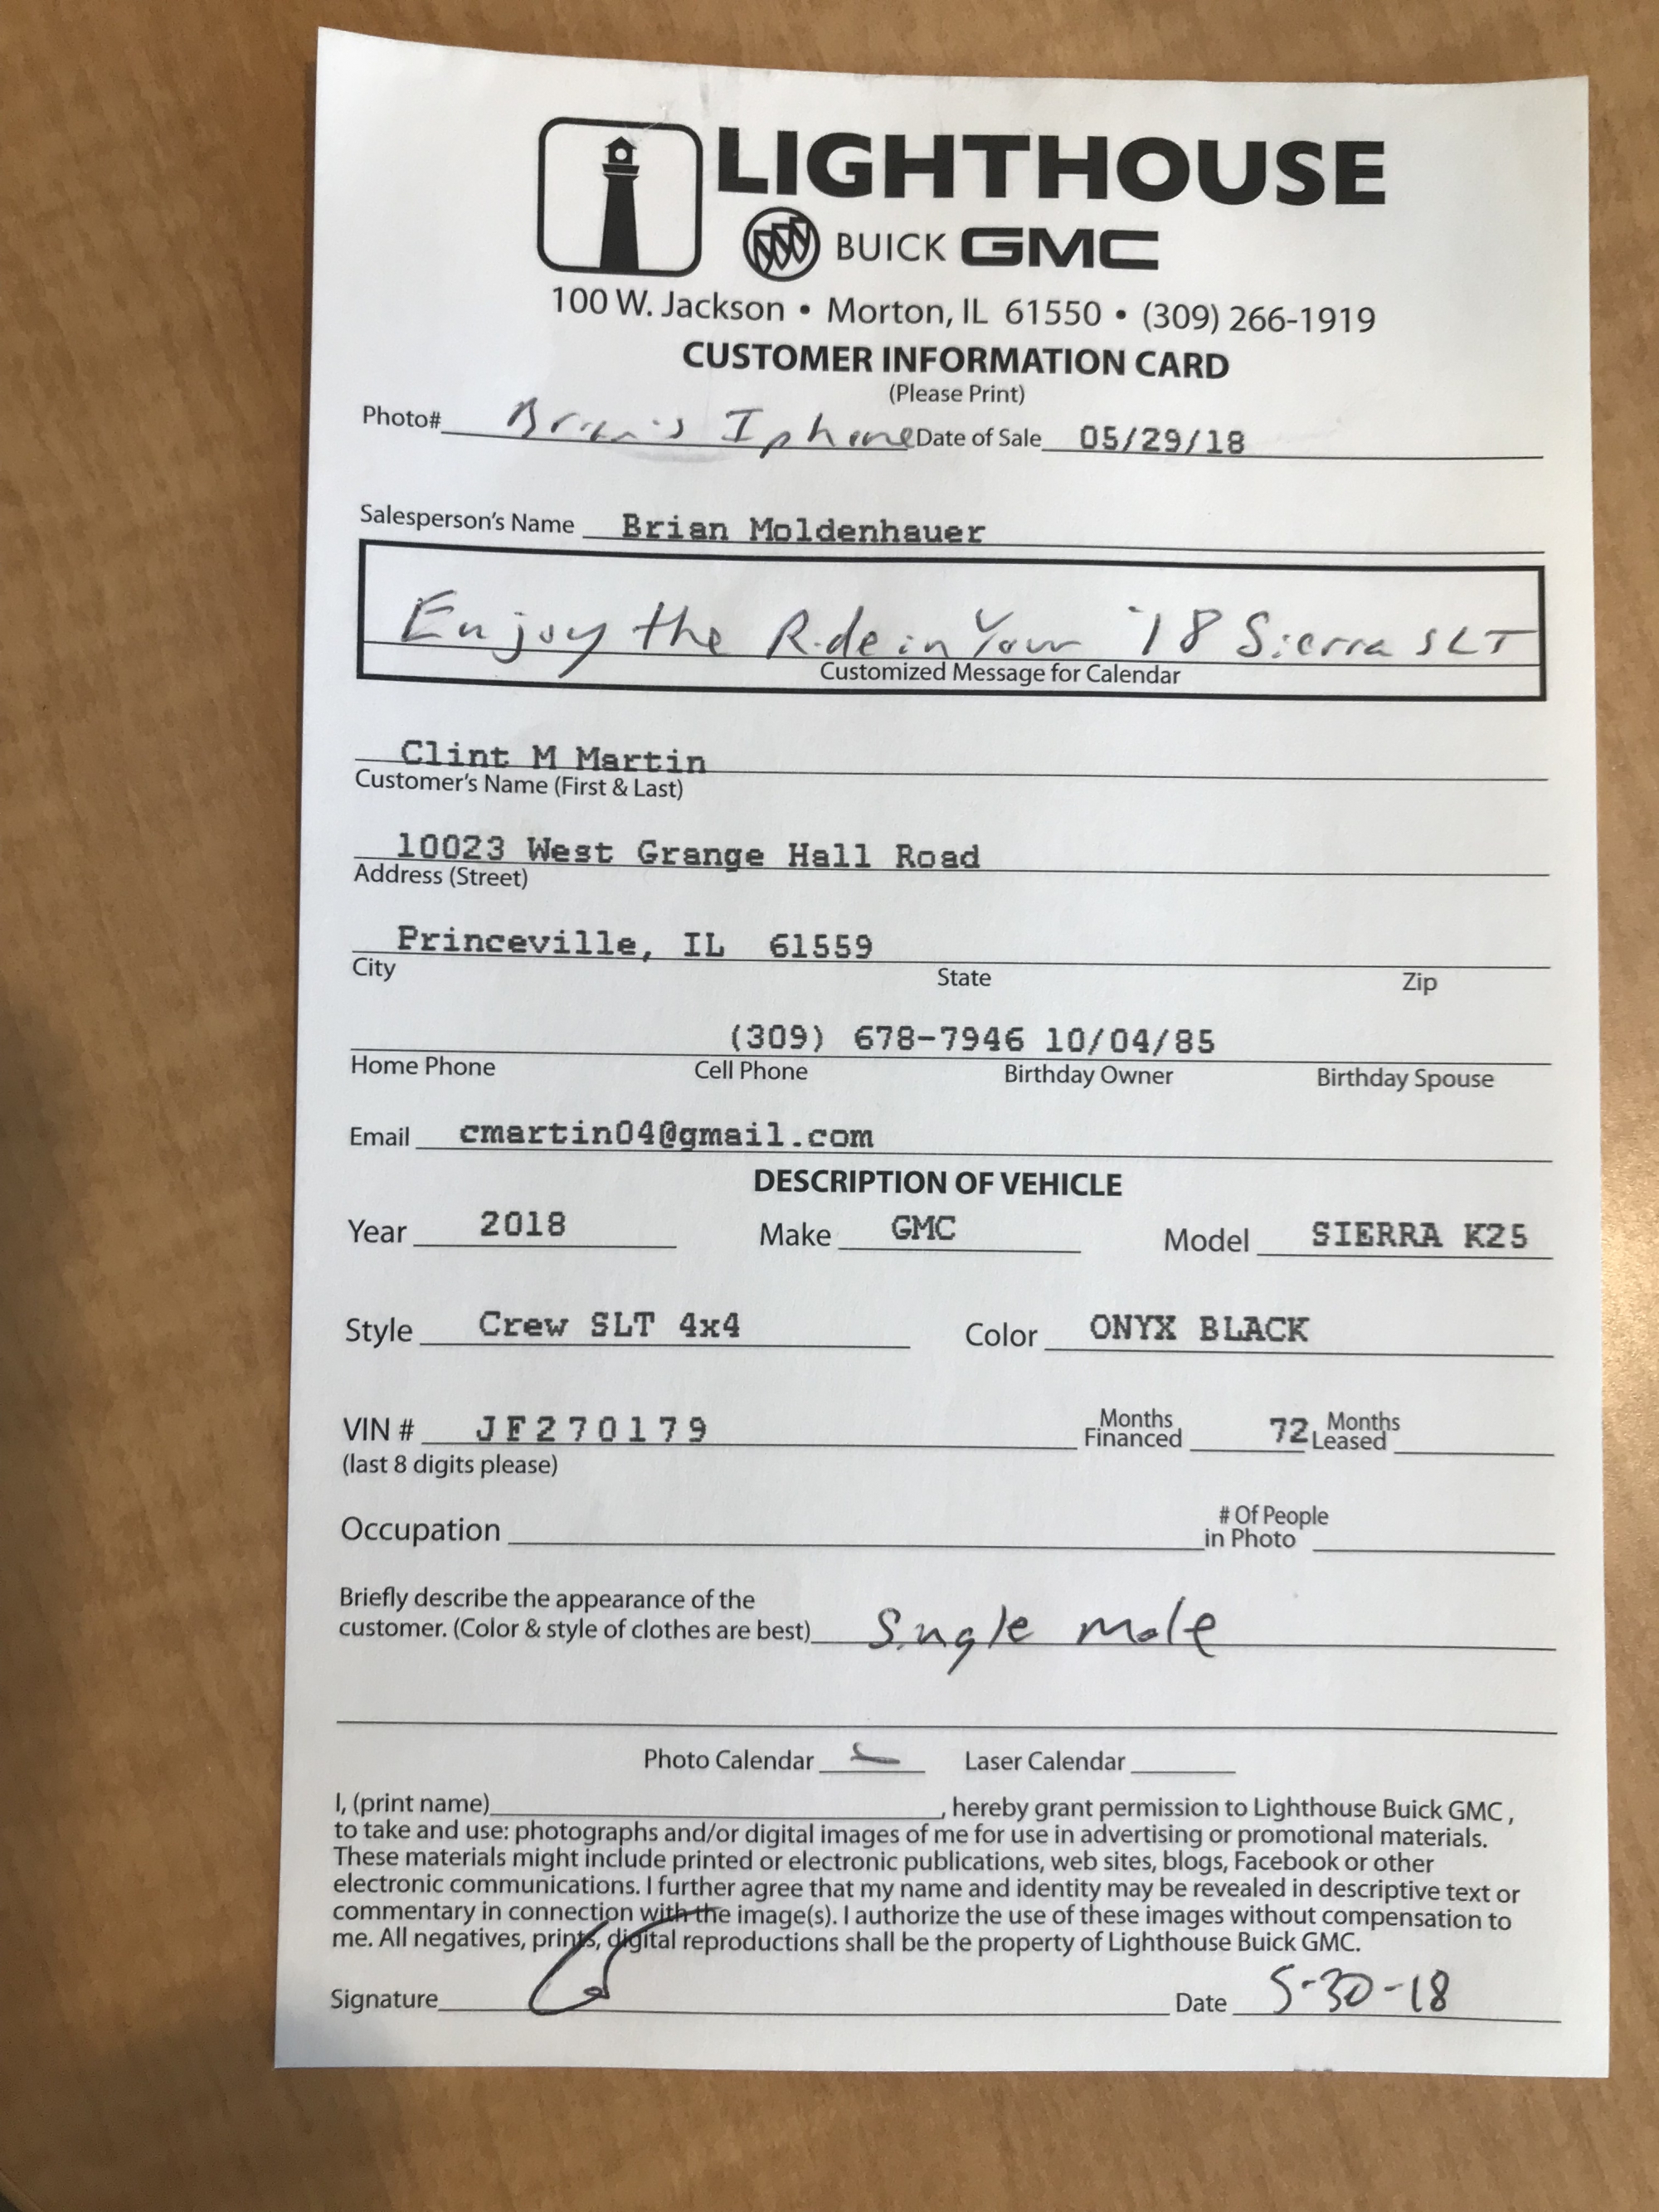 LIGHTHOUSE
BUICK GMC
100 W. Jackson • Morton, IL 61550 • (309) 266-1919
CUSTOMER INFORMATION CARD
(Please Print)
Photo# Brian's Iphone Date of Sale 05/29/18
Salesperson's Name Brian Moldenhauer
Enjoy the Ride in Your '18 Sierra SLT
Customized Message for Calendar
Clint M Martin
Customer's Name (First & Last)
10023 West Grange Hall Road
Address (Street)
Princeville, IL 61559
City State Zip
(309) 678-7946 10/04/85
Home Phone Cell Phone Birthday Owner Birthday Spouse
Email cmartin04@gmail.com
DESCRIPTION OF VEHICLE
Year 2018 Make GMC Model SIERRA K25
Style Crew SLT 4x4 Color ONYX BLACK
VIN # JF270179 Months Financed 72 Months Leased
(last 8 digits please)
Occupation # Of People in Photo
Briefly describe the appearance of the
customer. (Color & style of clothes are best) Single male
Photo Calendar Laser Calendar
I, (print name) , hereby grant permission to Lighthouse Buick GMC ,
to take and use: photographs and/or digital images of me for use in advertising or promotional materials.
These materials might include printed or electronic publications, web sites, blogs, Facebook or other
electronic communications. I further agree that my name and identity may be revealed in descriptive text or
commentary in connection with the image(s). I authorize the use of these images without compensation to
me. All negatives, prints, digital reproductions shall be the property of Lighthouse Buick GMC.
Signature Date 5-30-18